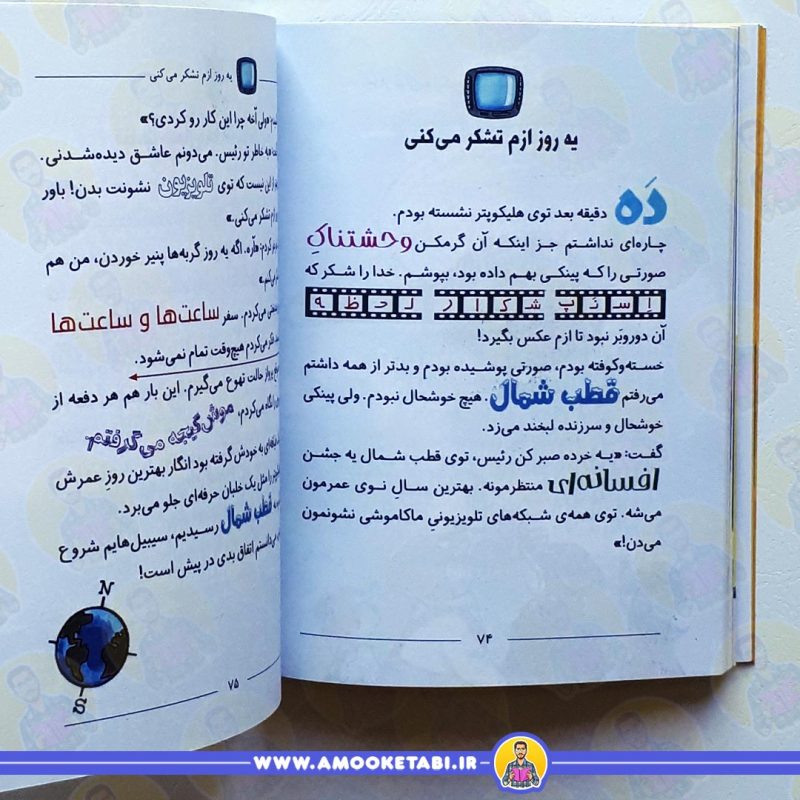 یه روز ازم تشکر می‌کنی
دَه دقیقه بعد توی هلیکوپتر نشسته بودم.
چاره‌ای نداشتم جز اینکه آن گرمکن وحشتناکِ
صورتی را که پینکی بهم داده بود، بپوشم. خدا را شکر که
اِسنَپ شکارِ لحظه
آن دوروبَر نبود تا ازم عکس بگیرد!
خسته‌وکوفته بودم، صورتی پوشیده بودم و بدتر از همه داشتم
می‌رفتم قطب شمال. هیچ خوشحال نبودم. ولی پینکی
خوشحال و سرزنده لبخند می‌زد.
گفت: «یه خرده صبر کن رئیس، توی قطب شمال یه جشن
افسانه‌ای منتظرمونه. بهترین سالِ نوی عمرمون
می‌شه. توی همه‌ی شبکه‌های تلویزیونیِ ماکاموشی نشونمون
می‌دن!»
۷۴
یه روز ازم تشکر می‌کنی
آخه چرا این کار رو کردی؟»
به خاطر تو رئیس. می‌دونم عاشق دیده‌شدنی.
این نیست که توی تلویزیون نشونت بدن! باور
ازم تشکر می‌کنی.»
اگه یه روز گربه‌ها پنیر خوردن، من هم
می‌کردم. سفر ساعت‌ها و ساعت‌ها
فکر می‌کردم هیچ‌وقت تمام نمی‌شود.
حالت تهوع می‌گیرم. این بار هم هر دفعه از
نگاه می‌کردم، موش‌گیجه می‌گرفتم!
به خودش گرفته بود انگار بهترین روزِ عمرش
را مثل یک خلبان حرفه‌ای جلو می‌برد.
قطب شمال رسیدیم، سیبیل‌هایم شروع
می‌دانستم اتفاق بدی در پیش است!
N
S
۷۵
WWW.AMOOKETABI.IR